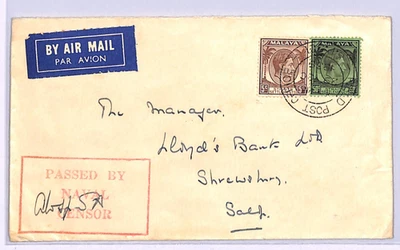 BY AIR MAIL
PAR AVION
MALAYA
MALAYA
POST
The Manager,
Lloyd's Bank Ltd
Shrewsbury,
Salop.
PASSED BY
NAVAL
CENSOR